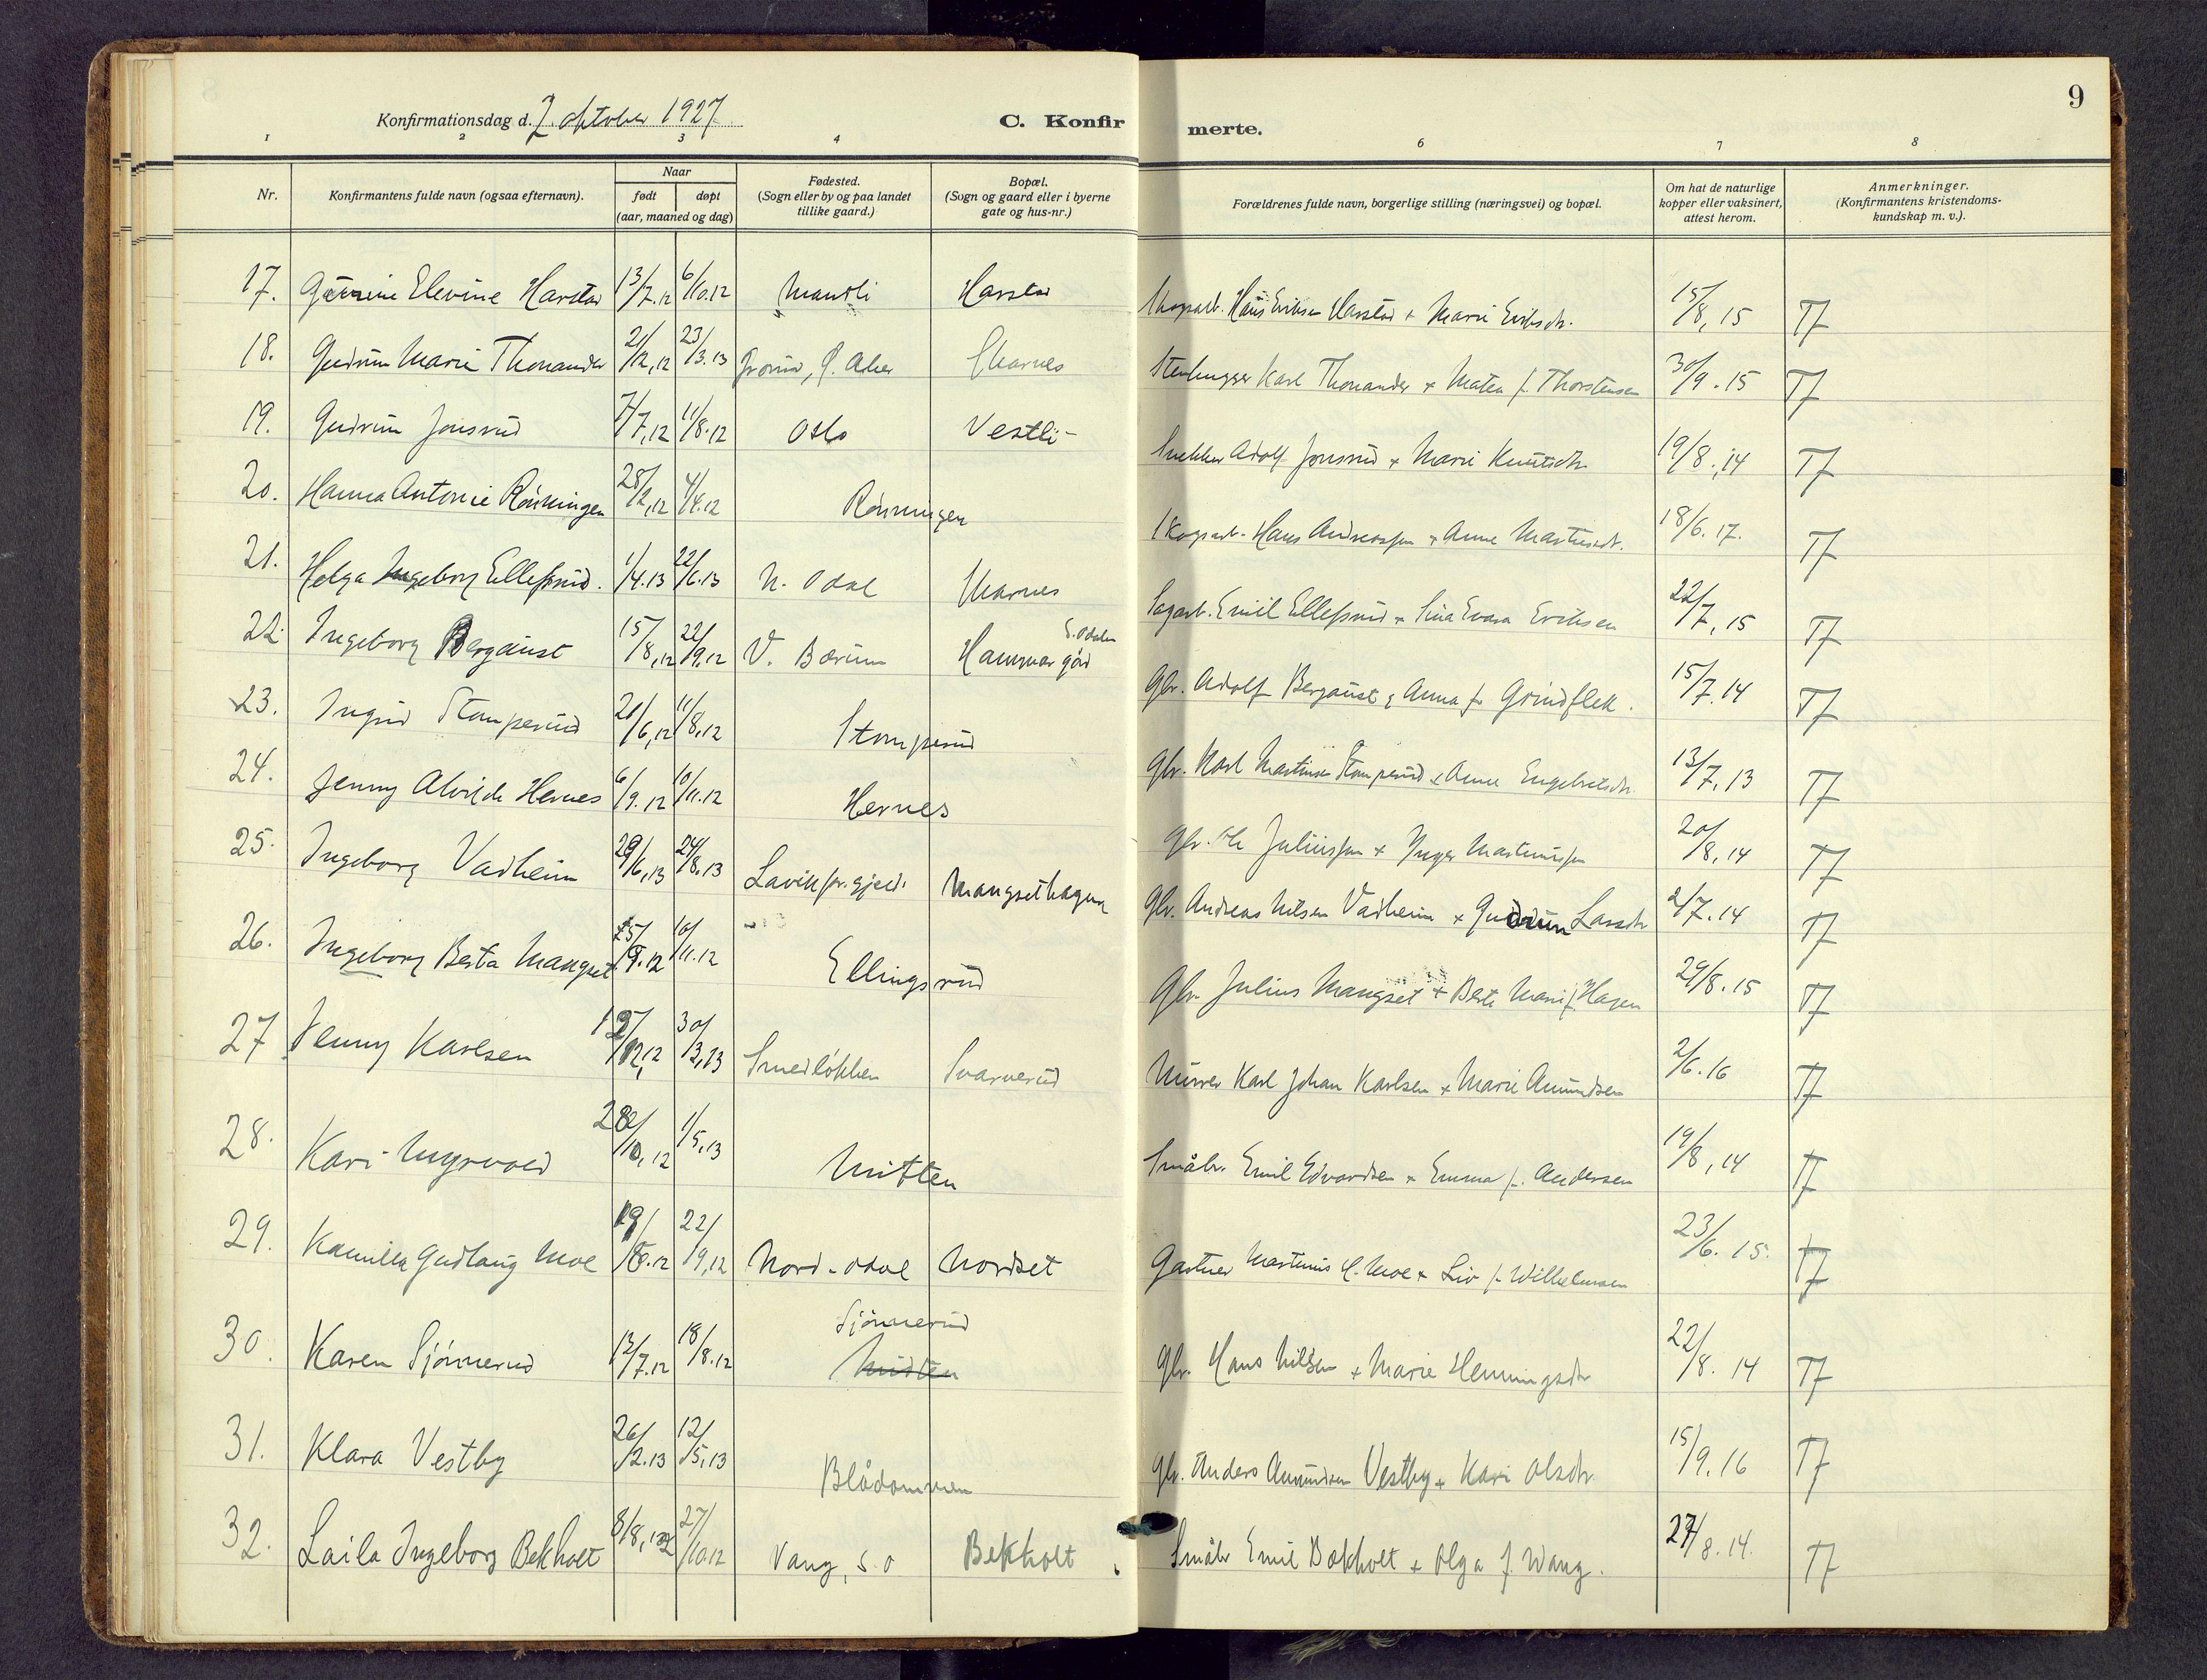 9
Konfirmationsdag d. 2 oktober 1927
C. Konfirmerte.
1 2 3 4 6 7 8
Nr.
Konfirmantens fulde navn (ogsaa efternavn).
Naar
født døpt
(aar, maaned og dag)
Fødested.
(Sogn eller by og paa landet
tillike gaard.)
Bopæl.
(Sogn og gaard eller i byerne
gate og hus-nr.)
Forældrenes fulde navn, borgerlige stilling (næringsvei) og bopæl.
Om hat de naturlige
kopper eller vaksinert,
attest herom.
Anmerkninger.
(Konfirmantens kristendoms-
kundskap m. v.).
17. Elevine Harstad 13/7.12 6/10.12 Mausli Harstad Hans Eriksen Harstad + Marie Eriksdr. 15/8, 15 TJ
18. Gudrun Marie Thonander 21/12,12 23/3.13 Skarnes Karl Thonander + Matea f. Thorstensen 30/9.15 TJ
19. Gudrun Jonsrud 7/7,12 11/8.12 Oslo Vestli Snekker Adolf Jonsrud + Marie Knutsdr. 19/8.14 TJ
20. Hanna Antonie Rönningen 28/2,12 4/4.12 Rönningen Skogsarb. Hans Andreassen + Anne Martinsdr. 18/6.17. TJ
21. Helga Ingeborg Ellefsrud. 1/4.13 22/6.13 N. Odal Skarnes Sagarb. Emil Ellefsrud + Evara Eriksen 22/7, 15 TJ
22. Ingeborg Bergaust 15/8,12 22/9,12 V. Bærum Hammer gård S. Odalen Gbr. Adolf Bergaust & Anna f. Grindflek. 15/7.14 TJ
23. Ingrid Stomperud 21/6,12 11/8,12 Stomperud Gbr. Karl Martinsen Stomperud + Anne Engebretsdr. 13/7,13 TJ
24. Jenny Alvilde Hernes 6/9.12 10/11.12 Hernes Gbr. Ole Juliussen + Inger Martinussen 20/8,14 TJ
25. Ingeborg Vadheim 29/6,13 24/8.13 Lavik pr.gjeld. Mangsethagen Gbr. Andreas Nilsen Vadheim + Gudrun Larsdr 2/7.14 TJ
26. Ingeborg Berta Mangset 25/9.12 10/11.12 Ellingsrud Gbr. Julius Mangset + Berte Marie f. Hagen 29/8.15 TJ
27 Jenny Karlsen 12/12,12 30/3,13 Smedløkken Svarverud Murer Karl Johan Karlsen + Marie Amundsen 2/6.16 TJ
28. Kari Myrvold 28/10,12 1/5,13 Mitten Småbr. Emil Edvardsen + Emma f. Andersen 19/8,14 TJ
29. Kamilla Gudlaug Moe 19/8.12 22/9,12 Nord-Odal Nordset Gartner Martinus H. Moe + Liv f. Wilhelmsen 23/6.15. TJ
30. Karen Sjönnerud 12/7.12 18/8.12 Sjönnerud Mitten Gbr. Hans Nilsen + Marie Henningsdr 22/8. 14 TJ
31. Klara Vestby 26/2.13 12/5,13 Blådammen Gbr. Anders Amundsen Vestby + Kari Olsdr. 15/9.16 TJ
32. Laila Ingeborg Bekholt 8/8,12 27/10 12 Vang, S. O Bekholt Småbr Emil Bekholt + Olga f. Wang. 27/8.14. TJ